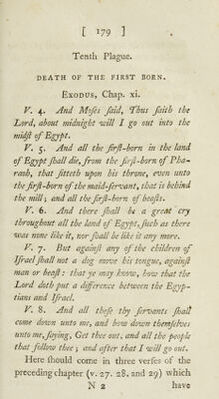 [ 179 ]
Tenth Plague.
DEATH OF THE FIRST BORN.
Exodus, Chap. xi.
V. 4. And Moſes ſaid, Thus ſaith the
Lord, about midnight will I go out into the
midſt of Egypt.
V. 5. And all the firſt-born in the land
of Egypt ſhall die, from the firſt-born of Pha-
raoh, that ſitteth upon his throne, even unto
the firſt-born of the maid-ſervant, that is behind
the mill; and all the firſt-born of beaſts.
V. 6. And there ſhall be a great cry
throughout all the land of Egypt, ſuch as there
was none like it, nor ſhall be like it any more.
V. 7. But againſt any of the children of
Iſrael ſhall not a dog move his tongue, againſt
man or beaſt: that ye may know, how that the
Lord doth put a difference between the Egyp-
tians and Iſrael.
V. 8. And all theſe thy ſervants ſhall
come down unto me, and bow down themſelves
unto me, ſaying, Get thee out, and all the people
that follow thee; and after that I will go out.
Here ſhould come in three verſes of the
preceding chapter (v. 27. 28, and 29) which
N 2 have